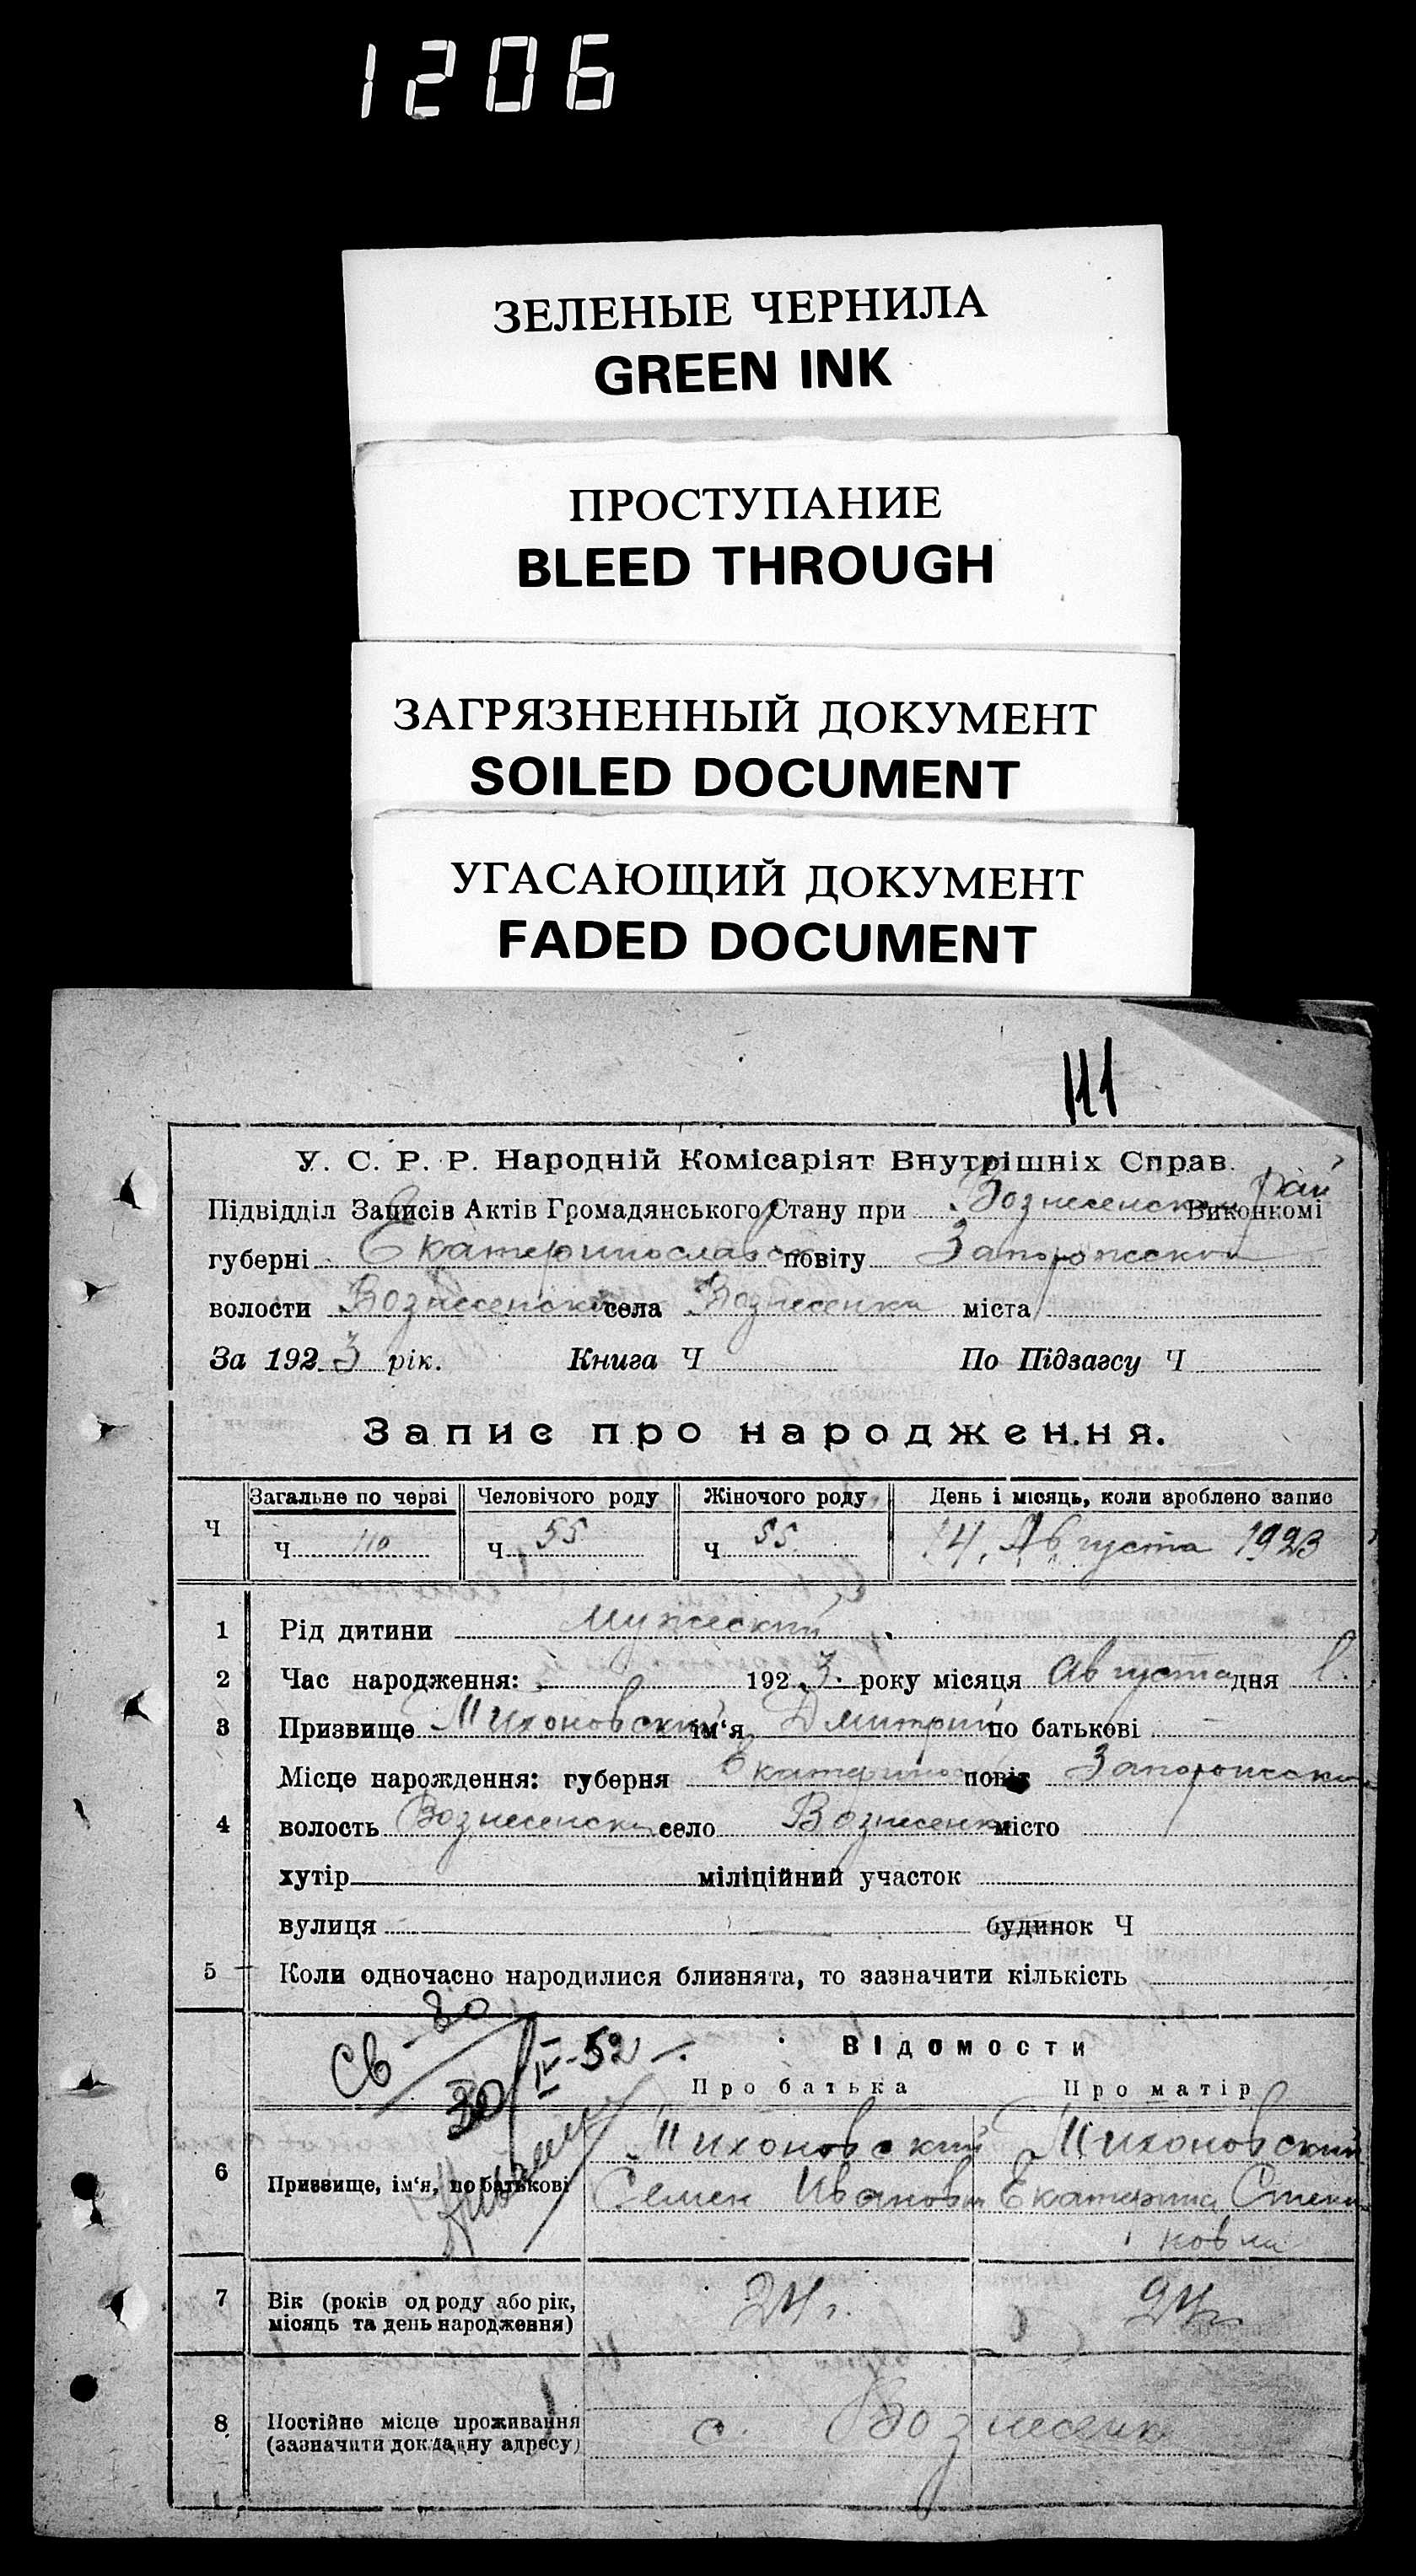 1206
ЗЕЛЕНЫЕ ЧЕРНИЛА
GREEN INK
ПРОСТУПАНИЕ
BLEED THROUGH
ЗАГРЯЗНЕННЫЙ ДОКУМЕНТ
SOILED DOCUMENT
УГАСАЮЩИЙ ДОКУМЕНТ
FADED DOCUMENT
111
У. С. Р. Р. Народній Комісаріят Внутрішніх Справ.
Підвідділ Записів Актів Громадянського Стану при Вознесенском рай Виконкомі
губерні Екатеринославск повіту Запорожском
волости Вознесенск села Вознесенка міста
За 1923 рік. Книга Ч По Підзагсу Ч
Запис про народження.
Загальне по черзі Человічого роду Жіночого роду День і місяць, коли зроблено запис
Ч Ч 110 Ч 55 Ч 55. 14, Августа 1923
1 Рід дитини Мужеский
2 Час народження: 1923. року місяця Августа дня 1.
3 Призвище Михоновский ім‘я Дмитрий по батькові —
Місце нарождення: губерня Екатеринос повіт Запорожский
4 волость Вознесенск село Вознесенка місто
хутір міліційний участок
вулиця — будинок Ч
5 Коли одночасно народилися близнята, то зазначити кількість
Св - 80
30/IV-52 -.
Відомости
Про батька Про матір
6 Призвище, ім‘я, по батькові Михоновский Михоновский
Семен Иванов Екатерина Степа
новна
7 Вік (років од роду або рік, місяць та день народження) 24 г. 24 г
8 Постійне місце проживання (зазначити докладну адресу) с. Вознесенка